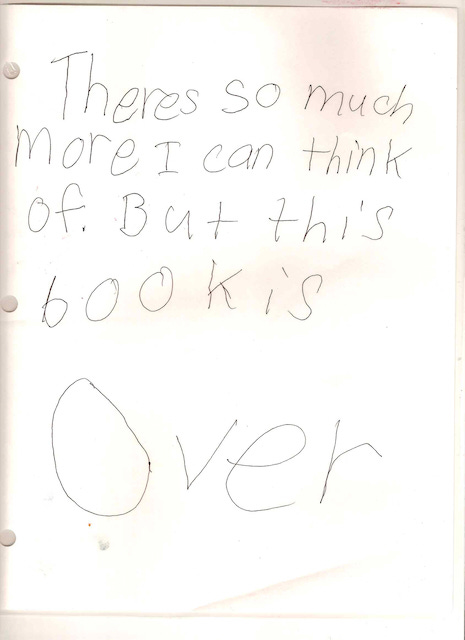 Theres so much
more I can think
of. But this
book is
Over